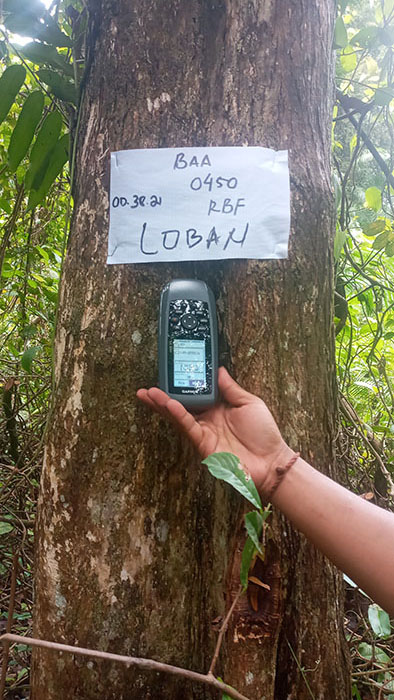 BAA
0450
00.38.21 RBF
LOBAN
GARMIN